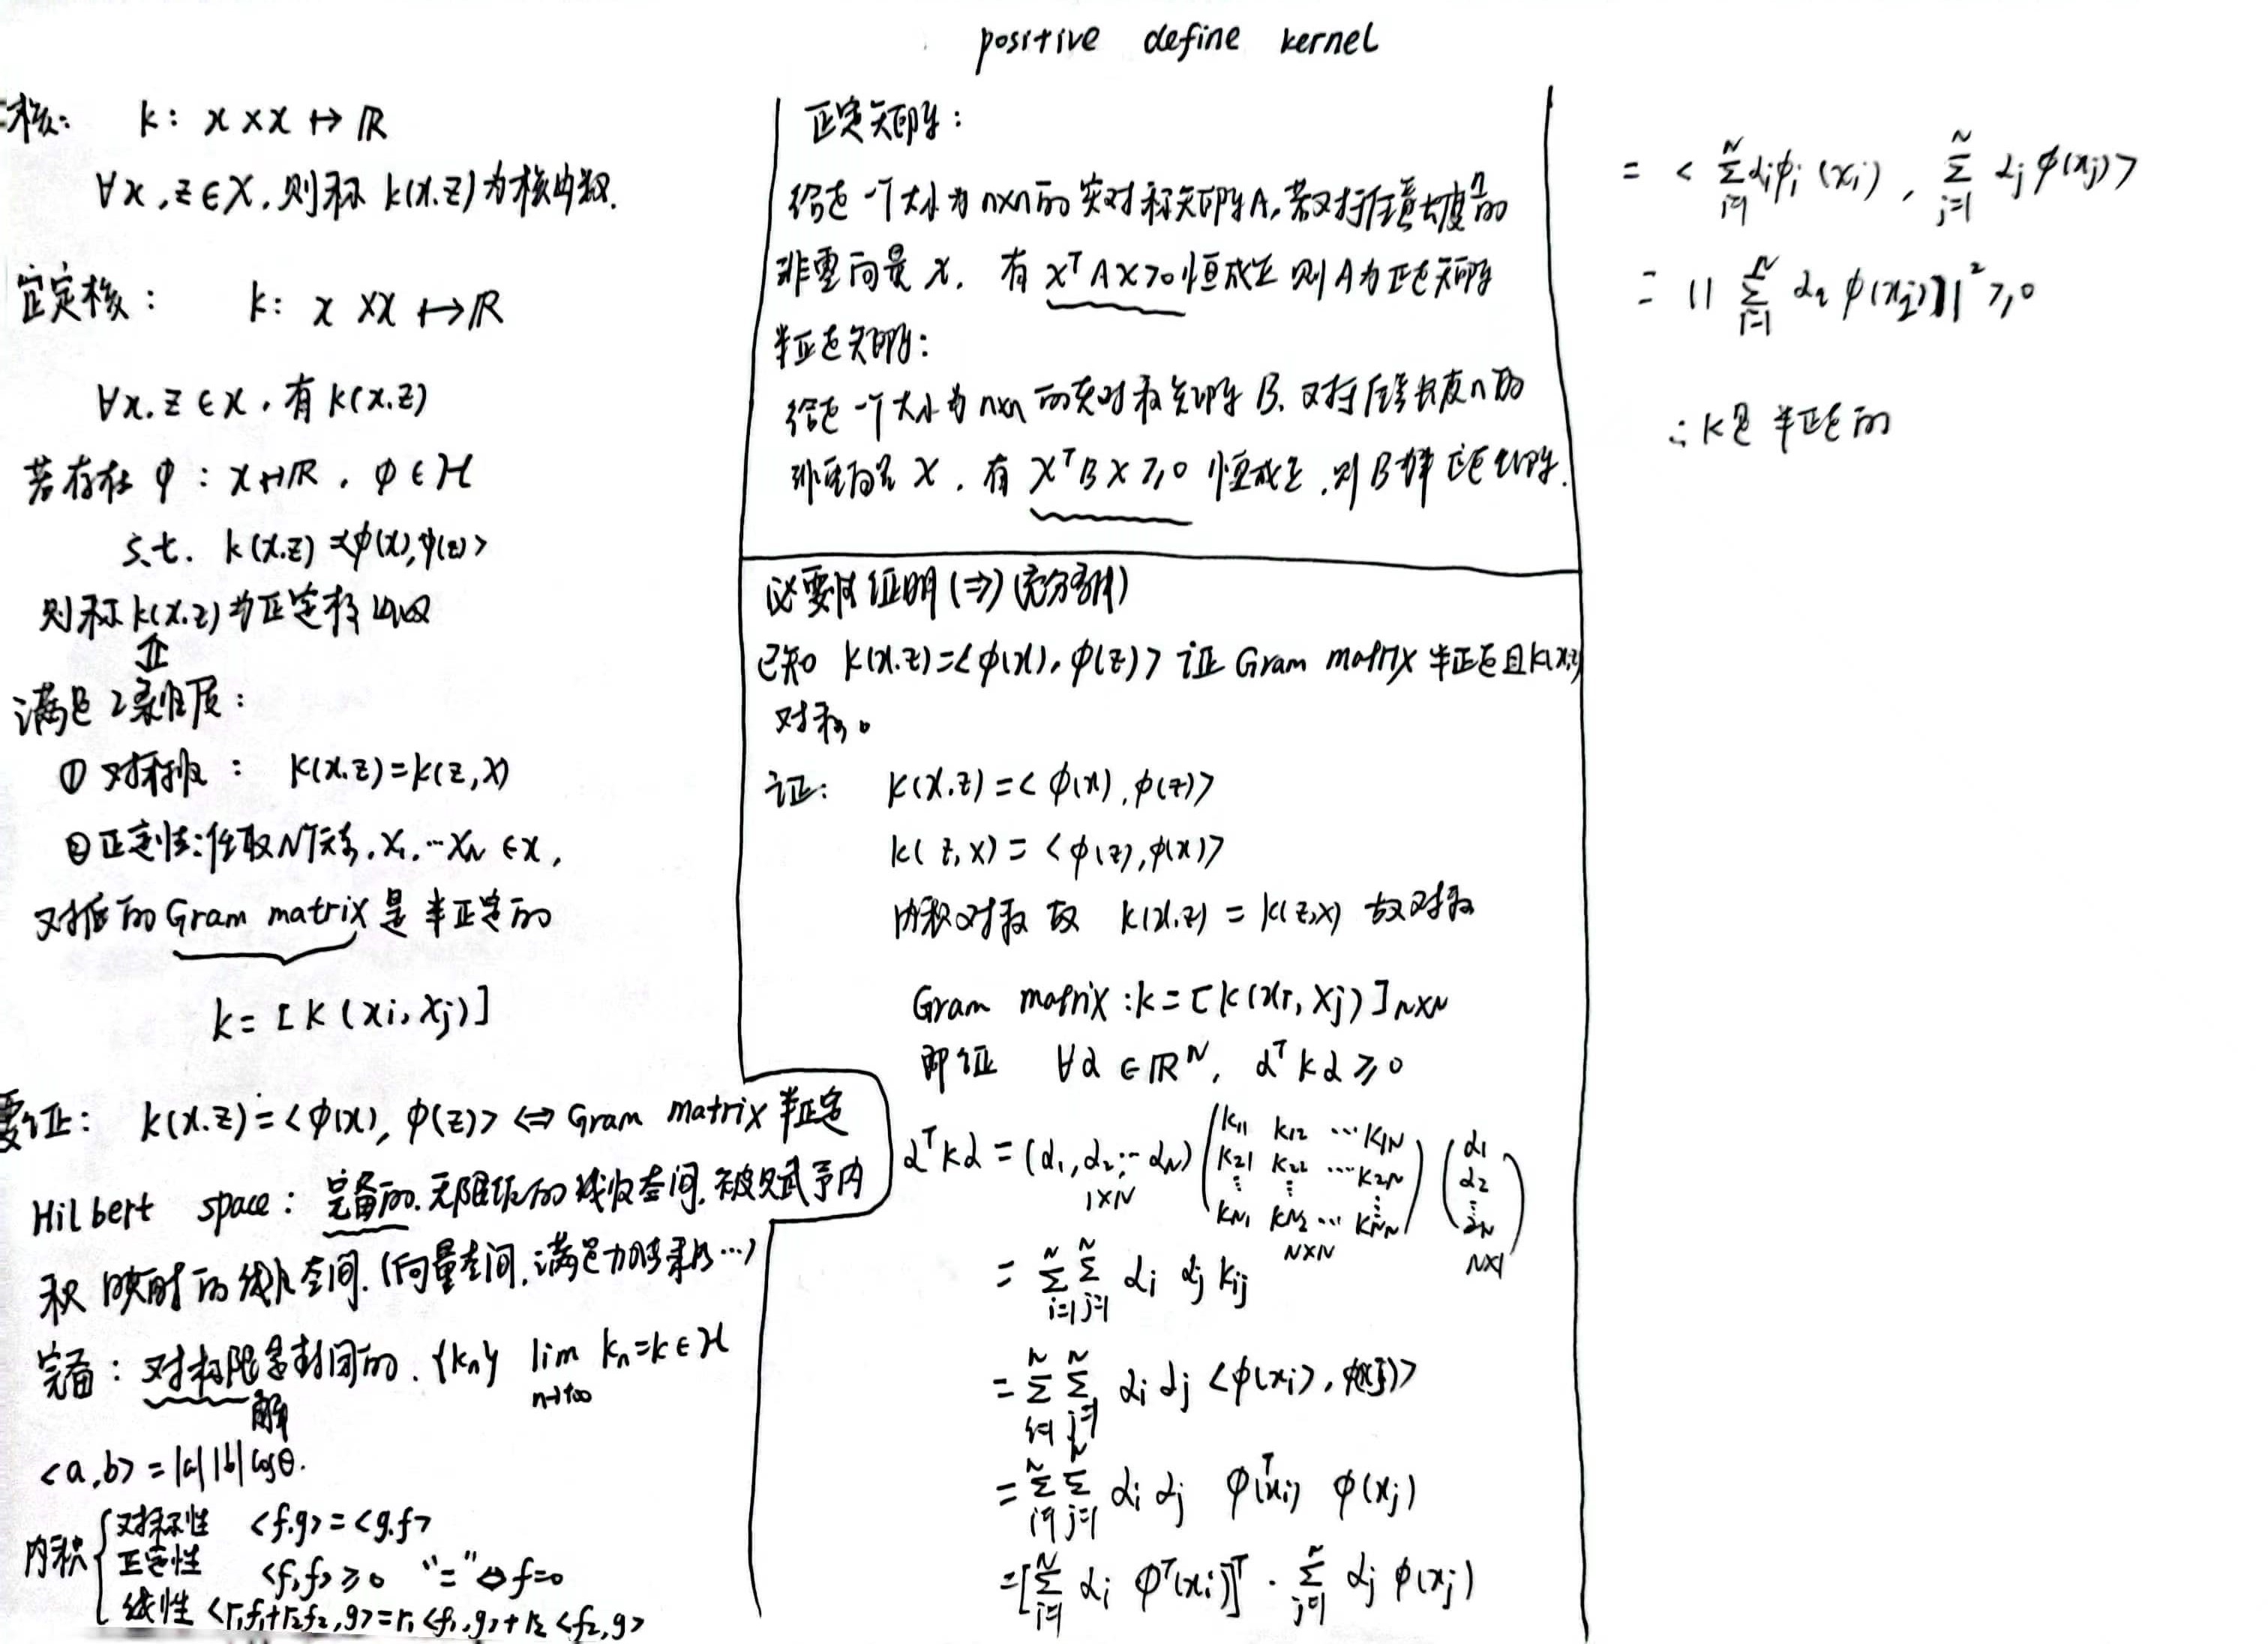 positive define kernel
核: k: x × x ↦ ℝ
∀x, z ∈ X, 则称 k(x.z) 为核函数.
正定核: k: x × x ↦ ℝ
∀x. z ∈ x, 有 k(x.z)
若存在 φ: x ↦ ℝ, φ ∈ H
s.t. k(x.z) = <φ(x), φ(z)>
则称 k(x.z) 为正定核函数
⇕
满足2条性质:
① 对称性: k(x.z) = k(z, x)
② 正定性: 任取N个元素, x₁, … x_N ∈ x,
对应的 Gram matrix 是半正定的
k = [k(xi, xj)]
要证: k(x.z) = <φ(x), φ(z)> ⇔ Gram matrix 半正定
Hilbert space: 完备的. 无限维的线性空间, 被赋予内
积 的线性空间. (向量空间, 满足加法乘法…)
完备: 对极限是封闭的. {kn} lim n→+∞ kn = k ∈ H
<a, b> = |a| |b| cosθ.
内积 { 对称性 <f.g> = <g.f>
正定性 <f, f> ≥ 0 “=” ⇔ f=0
线性 <r₁f₁+r₂f₂, g> = r₁<f₁, g> + r₂<f₂, g>
正定矩阵:
给定一个大小为 n×n 的实对称矩阵A, 若对于任意长度n的
非零向量 x, 有 xᵀAx>0 恒成立 则A为正定矩阵
半正定矩阵:
给定一个大小为 n×n 的实对称矩阵 B. 对于任意长度n的
非零向量 X, 有 XᵀBX ≥ 0 恒成立, 则B为半正定矩阵.
必要性证明 (⇒) (充分条件)
已知 k(x.z) = <φ(x), φ(z)> 证 Gram matrix 半正定且k(x,z)
对称。
证: k(x.z) = <φ(x), φ(z)>
k(z, x) = <φ(z), φ(x)>
内积对称 故 k(x.z) = k(z,x) 故对称
Gram matrix: k = [k(xi, xj)]N×N
即证 ∀α ∈ ℝᴺ, αᵀkα ≥ 0
αᵀkα = (α₁, α₂, … α_N) 1×N (k₁₁ k₁₂ … k₁N
k₂₁ k₂₂ … k₂N
⋮ ⋮ ⋮
kN₁ kN₂ … kNN) N×N (α₁
α₂
⋮
αN) N×1
= Σ_{i=1}^N Σ_{j=1}^N αi αj kij
= Σ_{i=1}^N Σ_{j=1}^N αi αj <φ(xi), φ(xj)>
= Σ_{i=1}^N Σ_{j=1}^N αi αj φᵀ(xi) φ(xj)
= [Σ_{i=1}^N αi φᵀ(xi)]ᵀ · Σ_{j=1}^N αj φ(xj)
= < Σ_{i=1}^N αiφi(xi), Σ_{j=1}^N αj φ(xj) >
= || Σ_{i=1}^N αi φ(xi) ||² ≥ 0
∴ K是半正定的